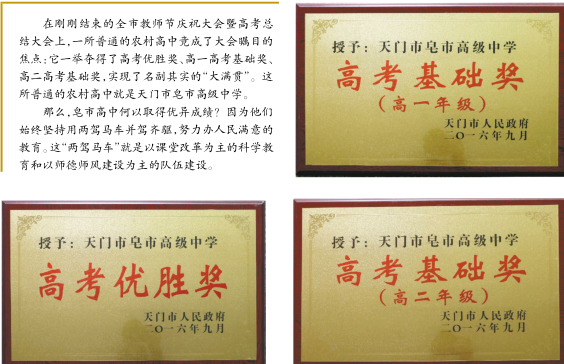 在刚刚结束的全市教师节庆祝大会暨高考总
结大会上,一所普通的农村高中竟成了大会瞩目的
焦点:它一举夺得了高考优胜奖、高一高考基础奖、
高二高考基础奖,实现了名副其实的“大满贯”。这
所普通的农村高中就是天门市皂市高级中学。
那么,皂市高中何以取得优异成绩?因为他们
始终坚持用两驾马车并驾齐驱,努力办人民满意的
教育。这“两驾马车”就是以课堂改革为主的科学教
育和以师德师风建设为主的队伍建设。
授予:天门市皂市高级中学
高考基础奖
(高一年级)
天门市人民政府
二〇一六年九月
授予:天门市皂市高级中学
高考优胜奖
天门市人民政府
二〇一六年九月
授予:天门市皂市高级中学
高考基础奖
(高二年级)
天门市人民政府
二〇一六年九月